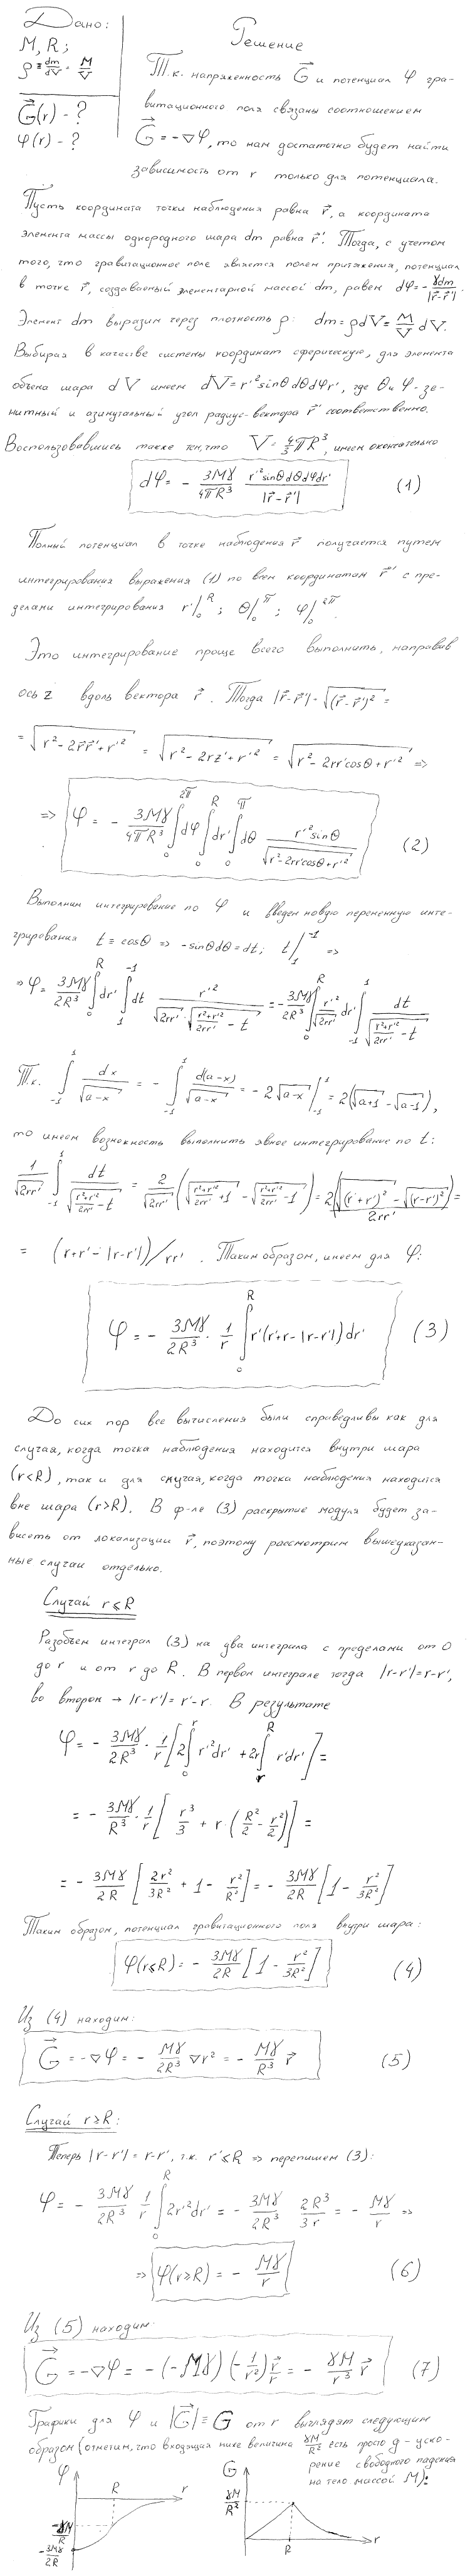 Дано:
M, R;
ρ ≡ dm/dV = M/V
G⃗(r) - ?
φ(r) - ?
Решение
Т.к. напряженность G⃗ и потенциал φ гра-
витационного поля связаны соотношением
G⃗ = -∇φ, то нам достаточно будет найти
зависимость от r только для потенциала.
Пусть координата точки наблюдения равна r⃗, а координата
элемента массы однородного шара dm равна r⃗'. Тогда, с учетом
того, что гравитационное поле является полем притяжения, потенциал
в точке r⃗, создаваемый элементарной массой dm, равен dφ = - γdm/|r⃗-r⃗'|.
Элемент dm выразим через плотность ρ: dm = ρdV = M/V dV.
Выбирая в качестве системы координат сферическую, для элемента
объема шара dV имеем dV = r'² sinθ dθ dφ dr', где θ и φ - зе-
нитный и азимутальный угол радиус-вектора r⃗' соответственно.
Воспользовавшись также тем, что V = 4/3 πR³, имеем окончательно
dφ = - 3Mγ/4πR³ r'² sinθ dθ dφ dr'/|r⃗-r⃗'| (1)
Полный потенциал в точке наблюдения r⃗ получается путем
интегрирования выражения (1) по всем координатам r⃗' с пре-
делами интегрирования r'|₀ᴿ; θ|₀^π; φ|₀^2π.
Это интегрирование проще всего выполнить, направив
ось z вдоль вектора r⃗. Тогда |r⃗-r⃗'| = √(r⃗-r⃗')² =
= √(r²-2r⃗r⃗'+r'²) = √(r²-2rz'+r'²) = √(r²-2rr'cosθ+r'²) ⇒
⇒ φ = - 3Mγ/4πR³ ∫₀^2π dφ ∫₀^R dr' ∫₀^π dθ r'² sinθ/√(r²-2rr'cosθ+r'²) (2)
Выполним интегрирование по φ и введем новую переменную инте-
грирования t ≡ cosθ ⇒ -sinθdθ = dt; t|₁^-1 ⇒
⇒ φ = 3Mγ/2R³ ∫₀^R dr' ∫₁^-1 dt r'²/(√(2rr')·√((r²+r'²)/2rr' - t)) = - 3Mγ/2R³ ∫₀^R r'²/√(2rr') dr' ∫₋₁^1 dt/√((r²+r'²)/2rr' - t)
Т.к. ∫₋₁^1 dx/√(a-x) = - ∫₋₁^1 d(a-x)/√(a-x) = -2√(a-x)|₋₁^1 = 2(√(a+1) - √(a-1)),
то имеем возможность выполнить явное интегрирование по t:
1/√(2rr') ∫₋₁^1 dt/√((r²+r'²)/2rr' - t) = 2/√(2rr') (√((r²+r'²)/2rr' + 1) - √((r²+r'²)/2rr' - 1)) = 2(√(r+r')² - √(r-r')²)/2rr' =
= (r+r'-|r-r'|)/rr'. Таким образом, имеем для φ:
φ = - 3Mγ/2R³ · 1/r ∫₀^R r'(r'+r-|r-r'|)dr' (3)
До сих пор все вычисления были справедливы как для
случая, когда точка наблюдения находится внутри шара
(r<R), так и для случая, когда точка наблюдения находится
вне шара (r>R). В ф-ле (3) раскрытие модуля будет за-
висеть от локализации r⃗, поэтому рассмотрим вышеуказан-
ные случаи отдельно.
Случай r ⩽ R
Разобьем интеграл (3) на два интеграла с пределами от 0
до r и от r до R. В первом интеграле тогда |r-r'| = r-r',
во втором → |r-r'| = r'-r. В результате
φ = - 3Mγ/2R³ · 1/r [2∫₀^r r'²dr' + 2r∫ᵣ^R r'dr'] =
= - 3Mγ/R³ · 1/r [r³/3 + r·(R²/2 - r²/2)] =
= - 3Mγ/2R [2r²/3R² + 1 - r²/R²] = - 3Mγ/2R [1 - r²/3R²]
Таким образом, потенциал гравитационного поля внутри шара:
φ(r⩽R) = - 3Mγ/2R [1 - r²/3R²] (4)
Из (4) находим:
G⃗ = -∇φ = - Mγ/2R³ ∇r² = - Mγ/R³ r⃗ (5)
Случай r ⩾ R:
Теперь |r-r'| = r-r', т.к. r' ⩽ R ⇒ перепишем (3):
φ = - 3Mγ/2R³ 1/r ∫₀^R 2r'²dr' = - 3Mγ/2R³ 2R³/3r = - Mγ/r ⇒
⇒ φ(r⩾R) = - Mγ/r (6)
Из (5) находим:
G⃗ = -∇φ = -(-Mγ)(-1/r²) r⃗/r = - γM/r³ r⃗ (7)
Графики для φ и |G⃗| ≡ G от r выглядят следующим
образом (отметим, что входящая ниже величина γM/R² есть просто g - уско-
рение свободного падения
на тело массой M):
φ
R
r
-γM/R
-3Mγ/2R
G
γM/R²
R
r